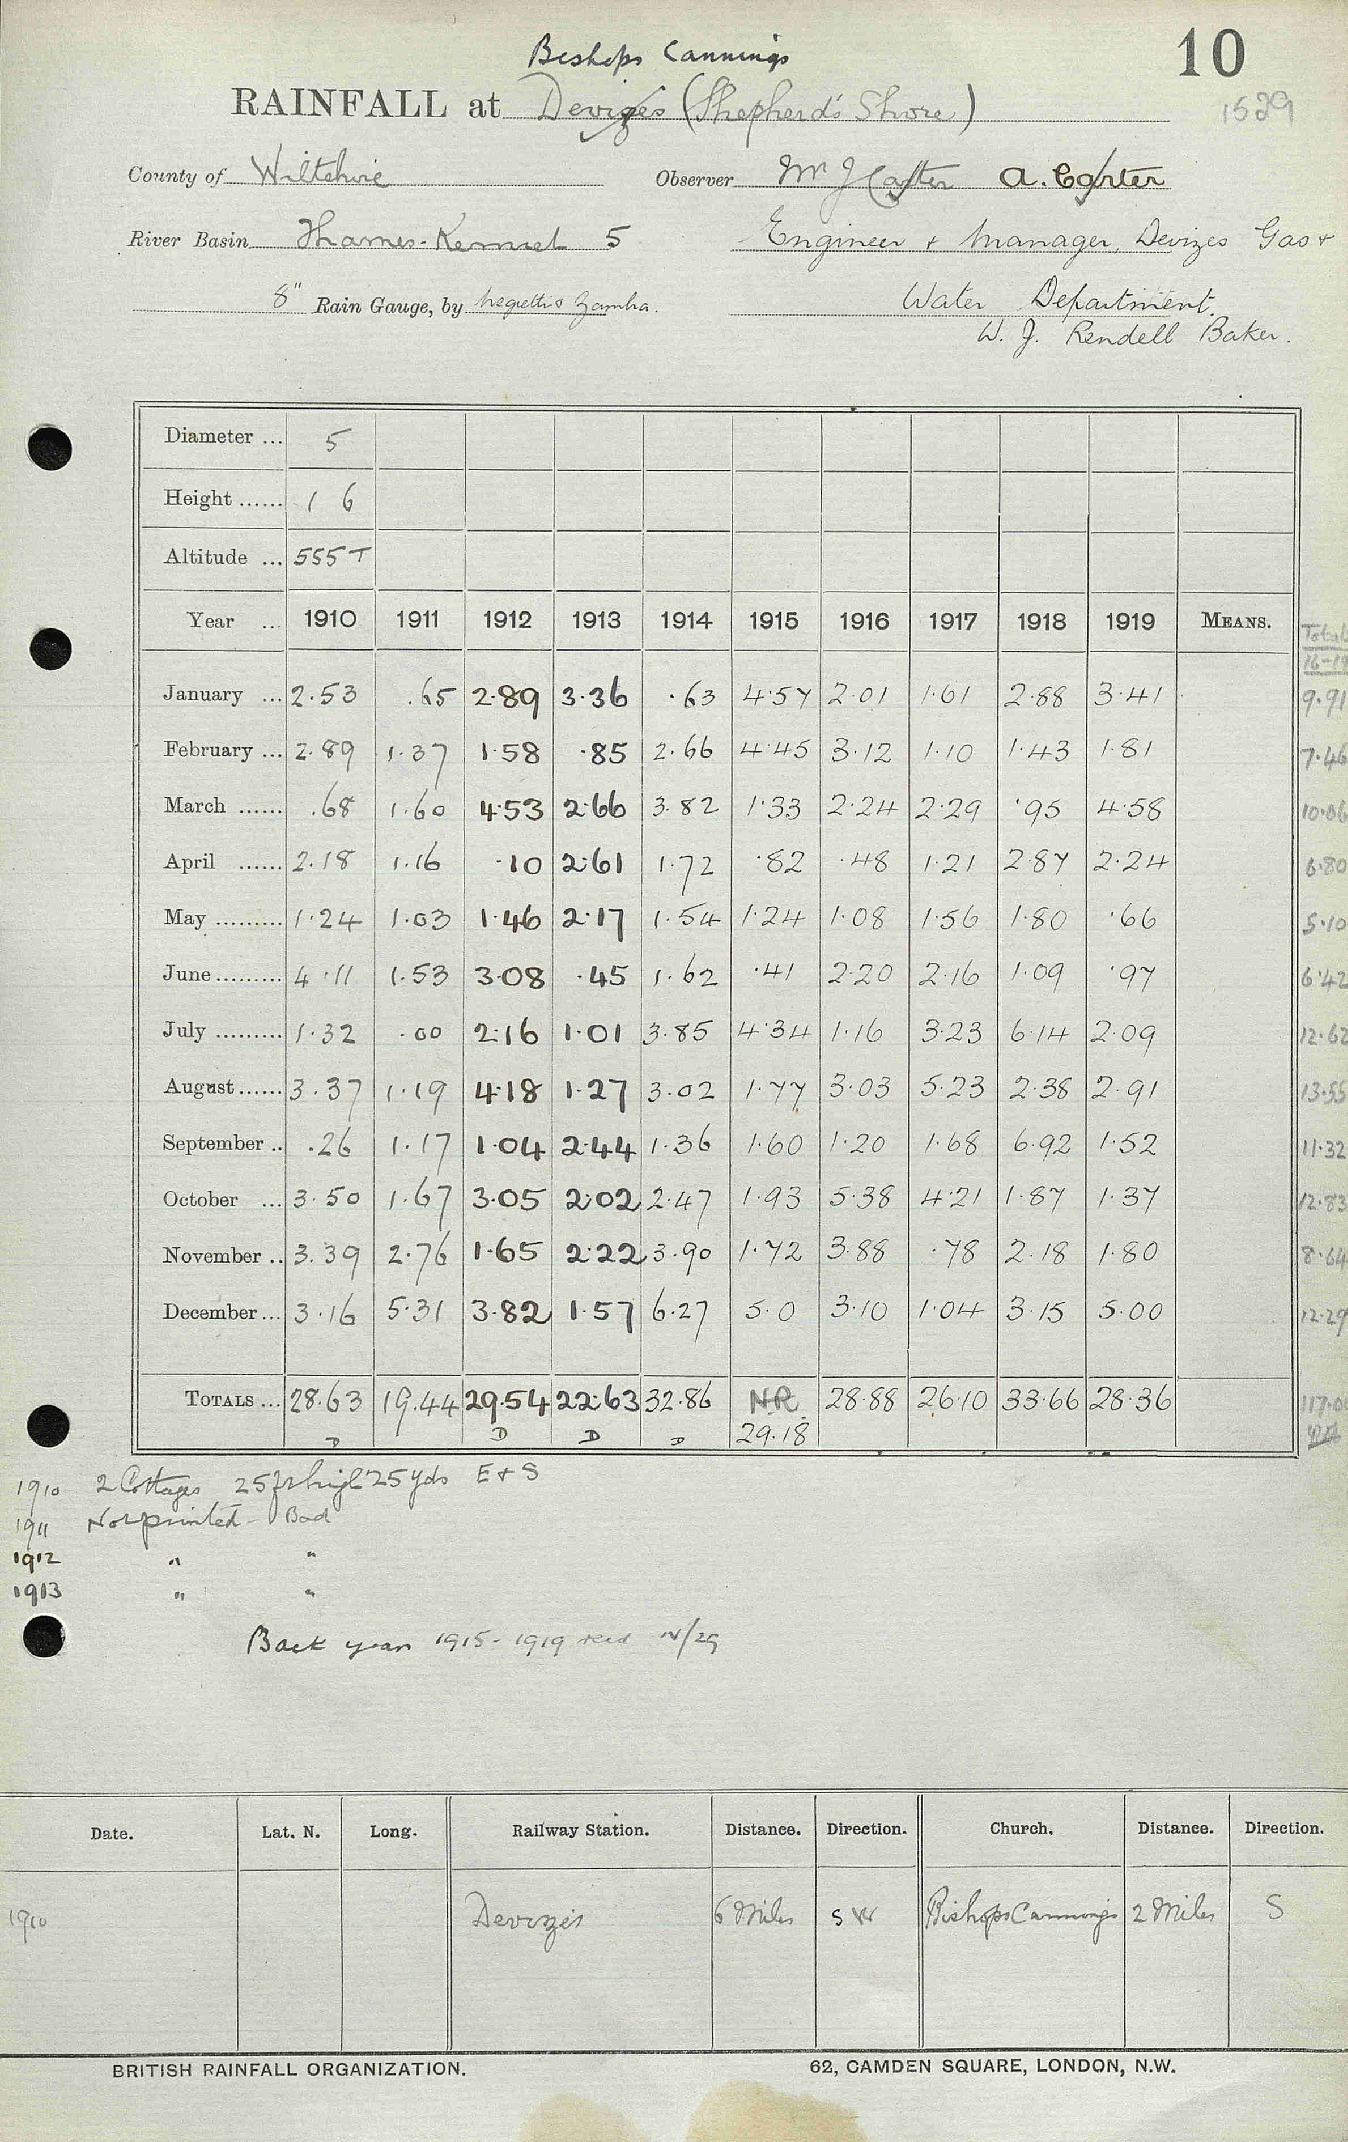 Bishops Cannings
10
RAINFALL at Devizes (Shepherd's Shore)
1529
County of Wiltshire Observer Mr J Carter A. Carter
River Basin Thames-Kennet 5 Engineer & Manager, Devizes Gas &
8" Rain Gauge, by Negretti & Zambra. Water Department.
W. J. Rendell Baker.
Diameter ... 5
Height ...... 1 6
Altitude ... 555 T
Year .. 1910 1911 1912 1913 1914 1915 1916 1917 1918 1919 MEANS. Total 16-19
January ... 2.53 .65 2.89 3.36 .63 4.57 2.01 1.61 2.88 3.41 9.91
February ... 2.89 1.37 1.58 .85 2.66 4.45 3.12 1.10 1.43 1.81 7.46
March ...... .68 1.60 4.53 2.66 3.82 1.33 2.24 2.29 .95 4.58 10.06
April ...... 2.18 1.16 .10 2.61 1.72 .82 .48 1.21 2.87 2.24 6.80
May ......... 1.24 1.03 1.46 2.17 1.54 1.24 1.08 1.56 1.80 .66 5.10
June ......... 4.11 1.53 3.08 .45 1.62 .41 2.20 2.16 1.09 .97 6.42
July ......... 1.32 .00 2.16 1.01 3.85 4.34 1.16 3.23 6.14 2.09 12.62
August ...... 3.37 1.19 4.18 1.27 3.02 1.77 3.03 5.23 2.38 2.91 13.55
September .. .26 1.17 1.04 2.44 1.36 1.60 1.20 1.68 6.92 1.52 11.32
October ... 3.50 1.67 3.05 2.02 2.47 1.93 5.38 4.21 1.87 1.37 12.83
November .. 3.39 2.76 1.65 2.22 3.90 1.72 3.88 .78 2.18 1.80 8.64
December ... 3.16 5.31 3.82 1.57 6.27 5.0 3.10 1.04 3.15 5.00 12.29
TOTALS ... 28.63 19.44 29.54 22.63 32.86 NR 28.88 26.10 33.66 28.36 117.00
D D D D 29.18
1910 2 Cottages 25 ft high 25 yds E & S
1911 Not printed - Bad
1912 " "
1913 " "
Back years 1915-1919 recd IV/29
Date. Lat. N. Long. Railway Station. Distance. Direction. Church. Distance. Direction.
1910 Devizes 6 Miles SW Bishops Cannings 2 Miles S
BRITISH RAINFALL ORGANIZATION. 62, CAMDEN SQUARE, LONDON, N.W.